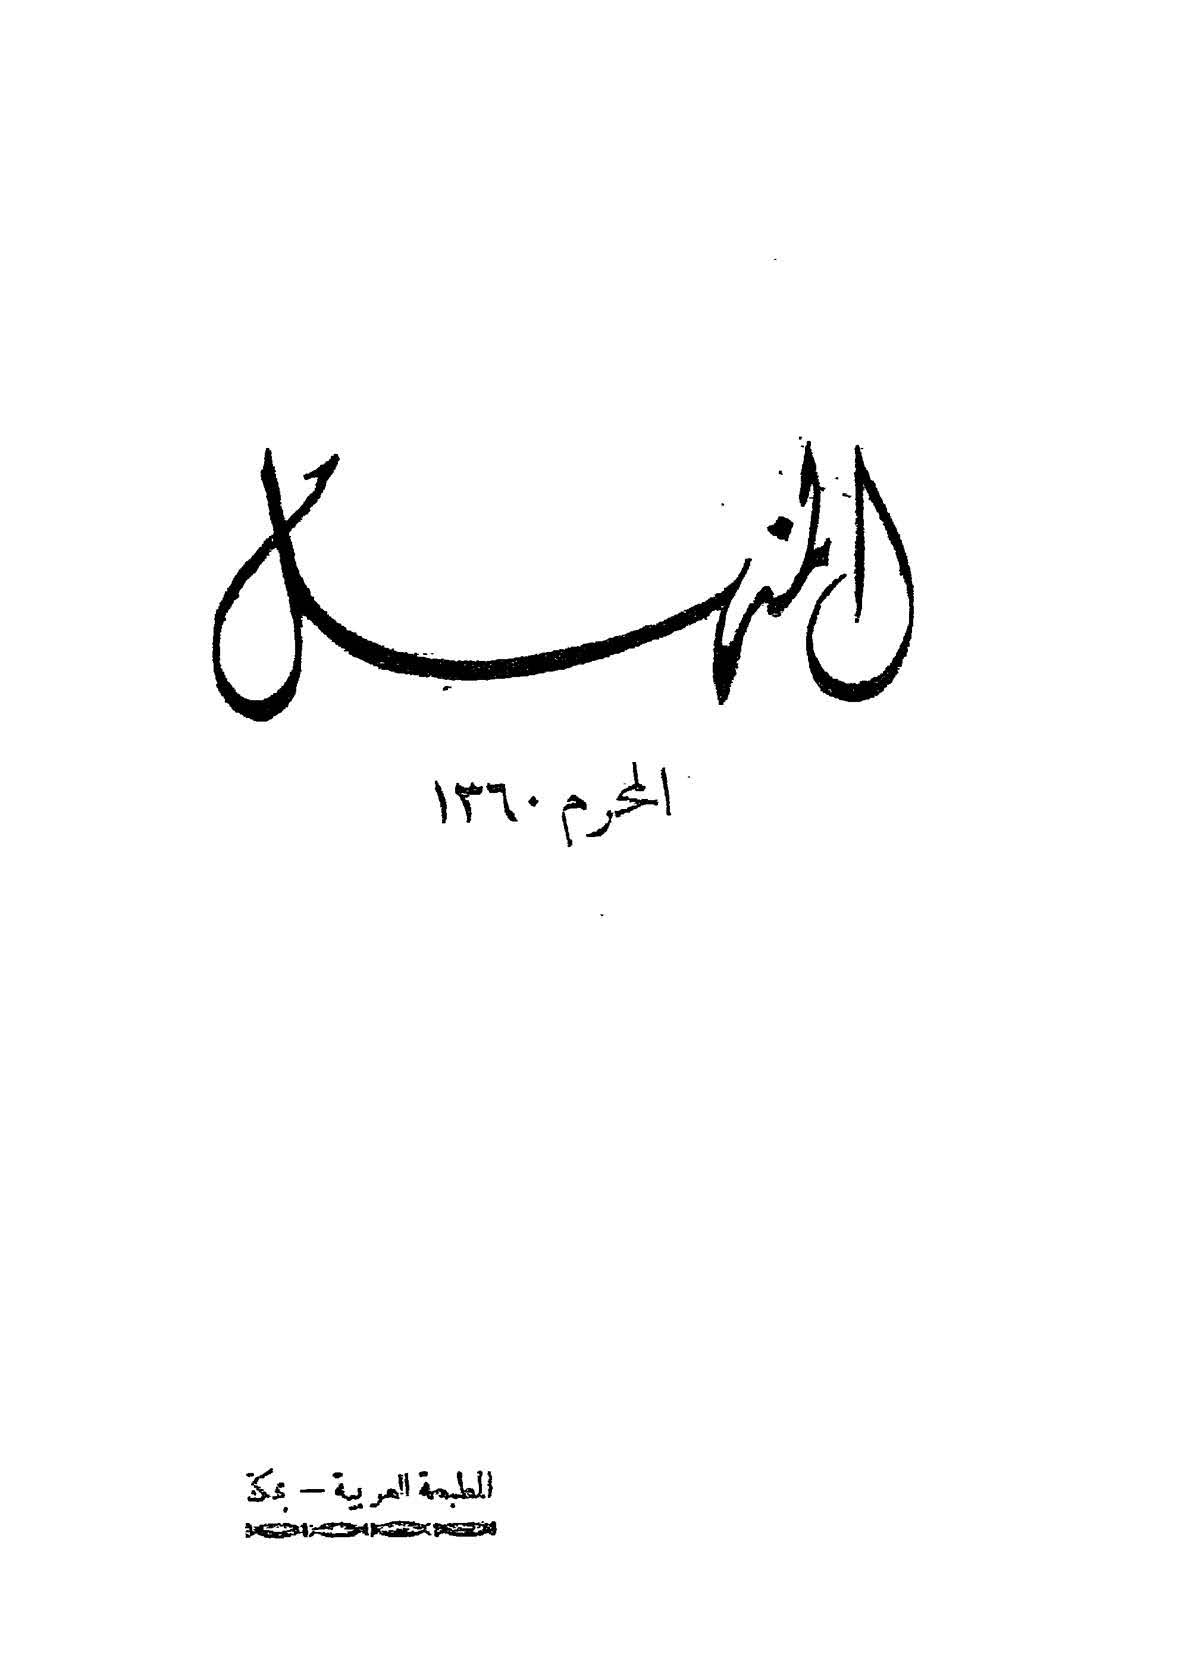 المنهل
المحرم ١٣٦٠
المطبعة العربية — بمكة